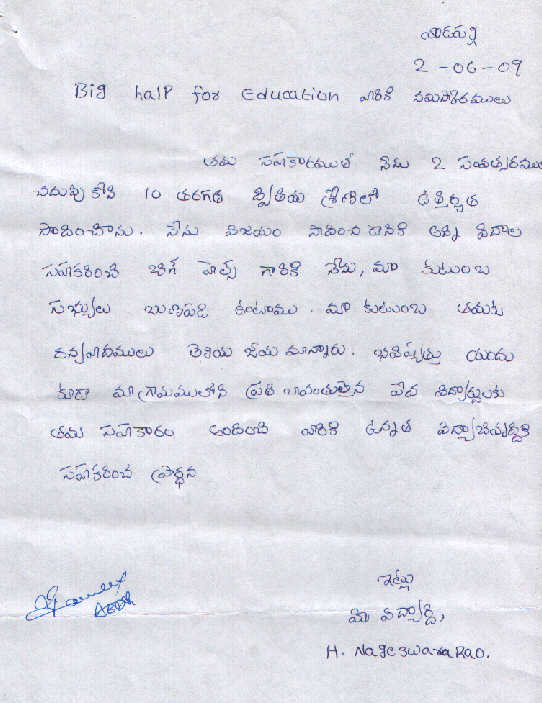 యాడవల్లి
2 - 06 - 09
Big halP for Education వారికి నమస్కారములు
తమ సహకారముతో నేను 2 సంవత్సరము
చదువు కొని 10 తరగతి ద్వితీయ శ్రేణిలో ఉత్తీర్ణత
సాదించాను. నేను విజయం సాదించడానికి అన్ని విదాల
సహకరించి బిగ్ హెల్ప్ గారికి నేను, మా కుటుంబ
సభ్యులు ఋణపడి ఉంటాము. మా కుటుంబ తమకు
ధన్యవాదములు తెలియ జేయు చున్నారు. భవిష్యత్తు యందు
కూడా మా గ్రామములోని ప్రతిభావంతులైన పేద విద్యార్థులకు
తమ సహకారం అందించి వారికి ఉన్నత విద్యాభివృద్దికి
సహకరించ ప్రార్థన
ఇట్లు
మీ విద్యార్ది,
H. NageswaraRao.